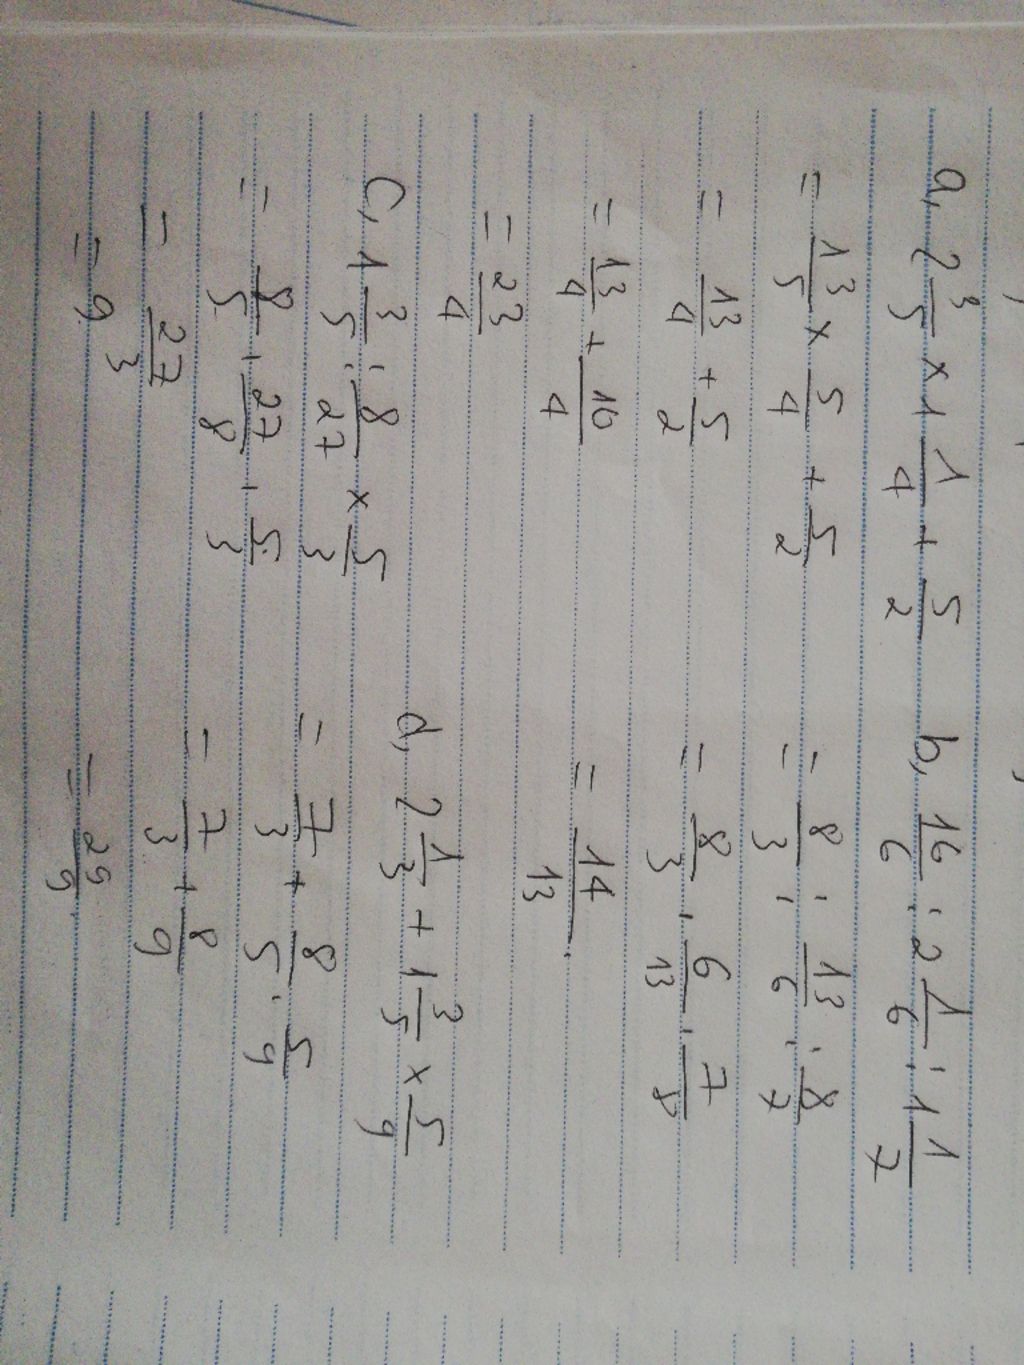 a, 2 3/5 × 1 1/4 + 5/2
= 13/5 × 5/4 + 5/2
= 13/4 + 5/2
= 13/4 + 10/4
= 23/4
b, 16/6 : 2 1/6 : 1 1/7
= 8/3 : 13/6 : 8/7
= 8/3 . 6/13 . 7/8
= 14/13
c, 1 3/5 : 8/27 × 5/3
= 8/5 . 27/8 . 5/3
= 27/3
= 9
d, 2 1/3 + 1 3/5 × 5/9
= 7/3 + 8/5 . 5/9
= 7/3 + 8/9
= 29/9